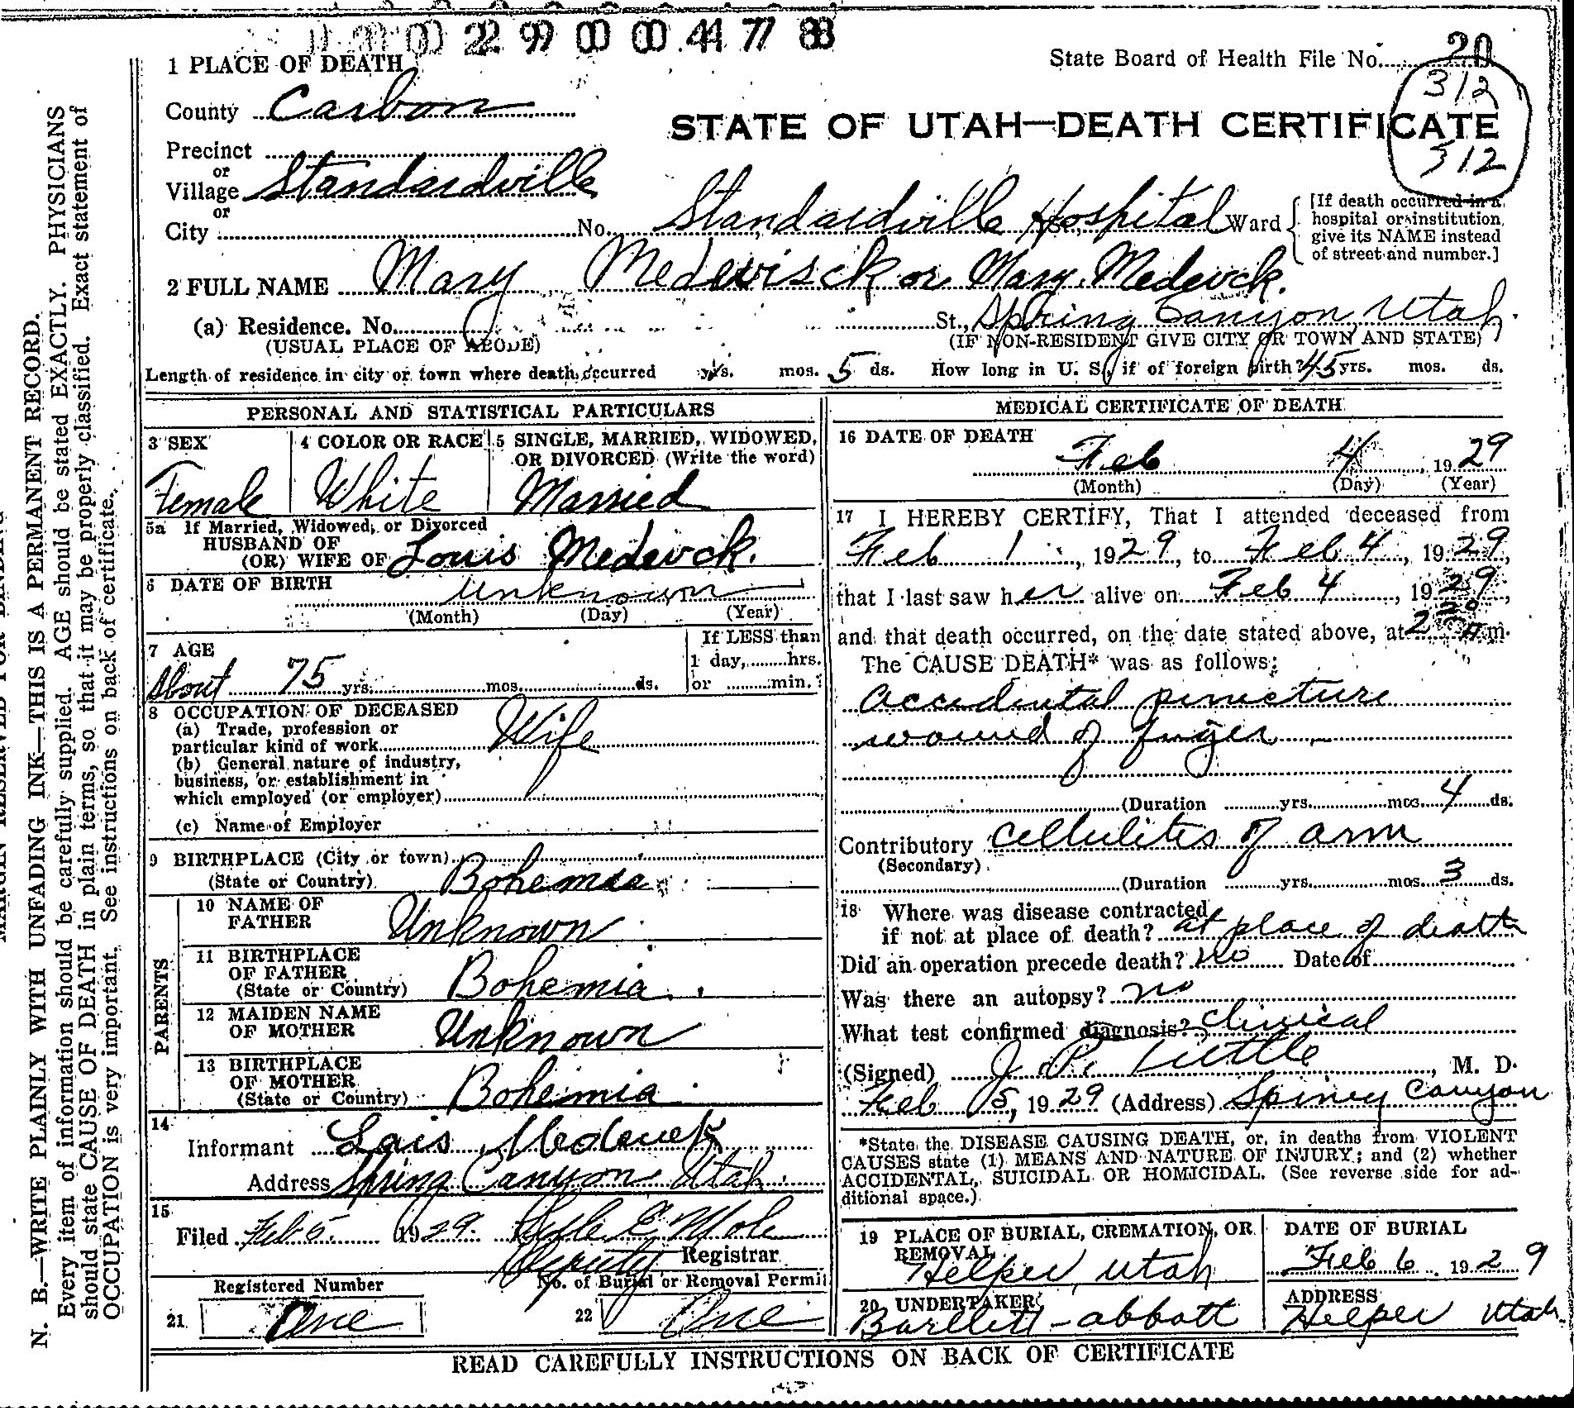 22 99 00 00 44 77 88
1 PLACE OF DEATH
State Board of Health File No. 20
312
County Carbon
STATE OF UTAH—DEATH CERTIFICATE
512
Precinct
or
Village Standardville
or
City No. Standardville Hospital Ward
[If death occurred in a
hospital or institution
give its NAME instead
of street and number.]
2 FULL NAME Mary Medevisck or Mary Medevck.
(a) Residence. No. St., Spring Canyon, Utah.
(USUAL PLACE OF ABODE) (IF NON-RESIDENT GIVE CITY OR TOWN AND STATE)
Length of residence in city or town where death occurred yrs. mos. 5 ds. How long in U. S., if of foreign birth? 45 yrs. mos. ds.
PERSONAL AND STATISTICAL PARTICULARS
3 SEX 4 COLOR OR RACE 5 SINGLE, MARRIED, WIDOWED,
OR DIVORCED (Write the word)
Female White Married
5a If Married, Widowed, or Divorced
HUSBAND OF
(OR) WIFE OF Louis Medevck.
6 DATE OF BIRTH unknown
(Month) (Day) (Year)
7 AGE If LESS than
1 day, hrs.
About 75 yrs. mos. ds. or min.?
8 OCCUPATION OF DECEASED
(a) Trade, profession or
particular kind of work Wife
(b) General nature of industry,
business, or establishment in
which employed (or employer)
(c) Name of Employer
9 BIRTHPLACE (City or town)
(State or Country) Bohemia
PARENTS
10 NAME OF
FATHER Unknown
11 BIRTHPLACE
OF FATHER
(State or Country) Bohemia.
12 MAIDEN NAME
OF MOTHER Unknown
13 BIRTHPLACE
OF MOTHER
(State or Country) Bohemia.
14
Informant
Address Spring Canyon Utah.
15
Filed Feb 5. 1929.
Deputy Registrar
Registered Number No. of Burial or Removal Permit
21 One 22 One
MEDICAL CERTIFICATE OF DEATH
16 DATE OF DEATH
Feb 4, 1929
(Month) (Day) (Year)
17 I HEREBY CERTIFY, That I attended deceased from
Feb 1, 1929, to Feb 4, 1929,
that I last saw her alive on Feb 4, 1929,
and that death occurred, on the date stated above, at m.
The CAUSE DEATH* was as follows:
accidental puncture
wound of finger
(Duration yrs. mos. 4 ds.
Contributory cellulites of arm
(Secondary)
(Duration yrs. mos. 3 ds.
18 Where was disease contracted
if not at place of death? at place of death
Did an operation precede death? no Date of
Was there an autopsy? no
What test confirmed diagnosis? clinical
(Signed) J. P. Tuttle, M. D.
Feb 5, 1929 (Address) Spring Canyon
*State the DISEASE CAUSING DEATH, or, in deaths from VIOLENT
CAUSES state (1) MEANS AND NATURE OF INJURY; and (2) whether
ACCIDENTAL, SUICIDAL OR HOMICIDAL. (See reverse side for ad-
ditional space.)
19 PLACE OF BURIAL, CREMATION, OR
REMOVAL
Helper Utah
DATE OF BURIAL
Feb 6, 1929
20 UNDERTAKER
Bartlett - Abbott
ADDRESS
Helper Utah
READ CAREFULLY INSTRUCTIONS ON BACK OF CERTIFICATE
N. B.—WRITE PLAINLY WITH UNFADING INK—THIS IS A PERMANENT RECORD.
Every item of information should be carefully supplied. AGE should be stated EXACTLY. PHYSICIANS
should state CAUSE OF DEATH in plain terms, so that it may be properly classified. Exact statement of
OCCUPATION is very important. See instructions on back of certificate.